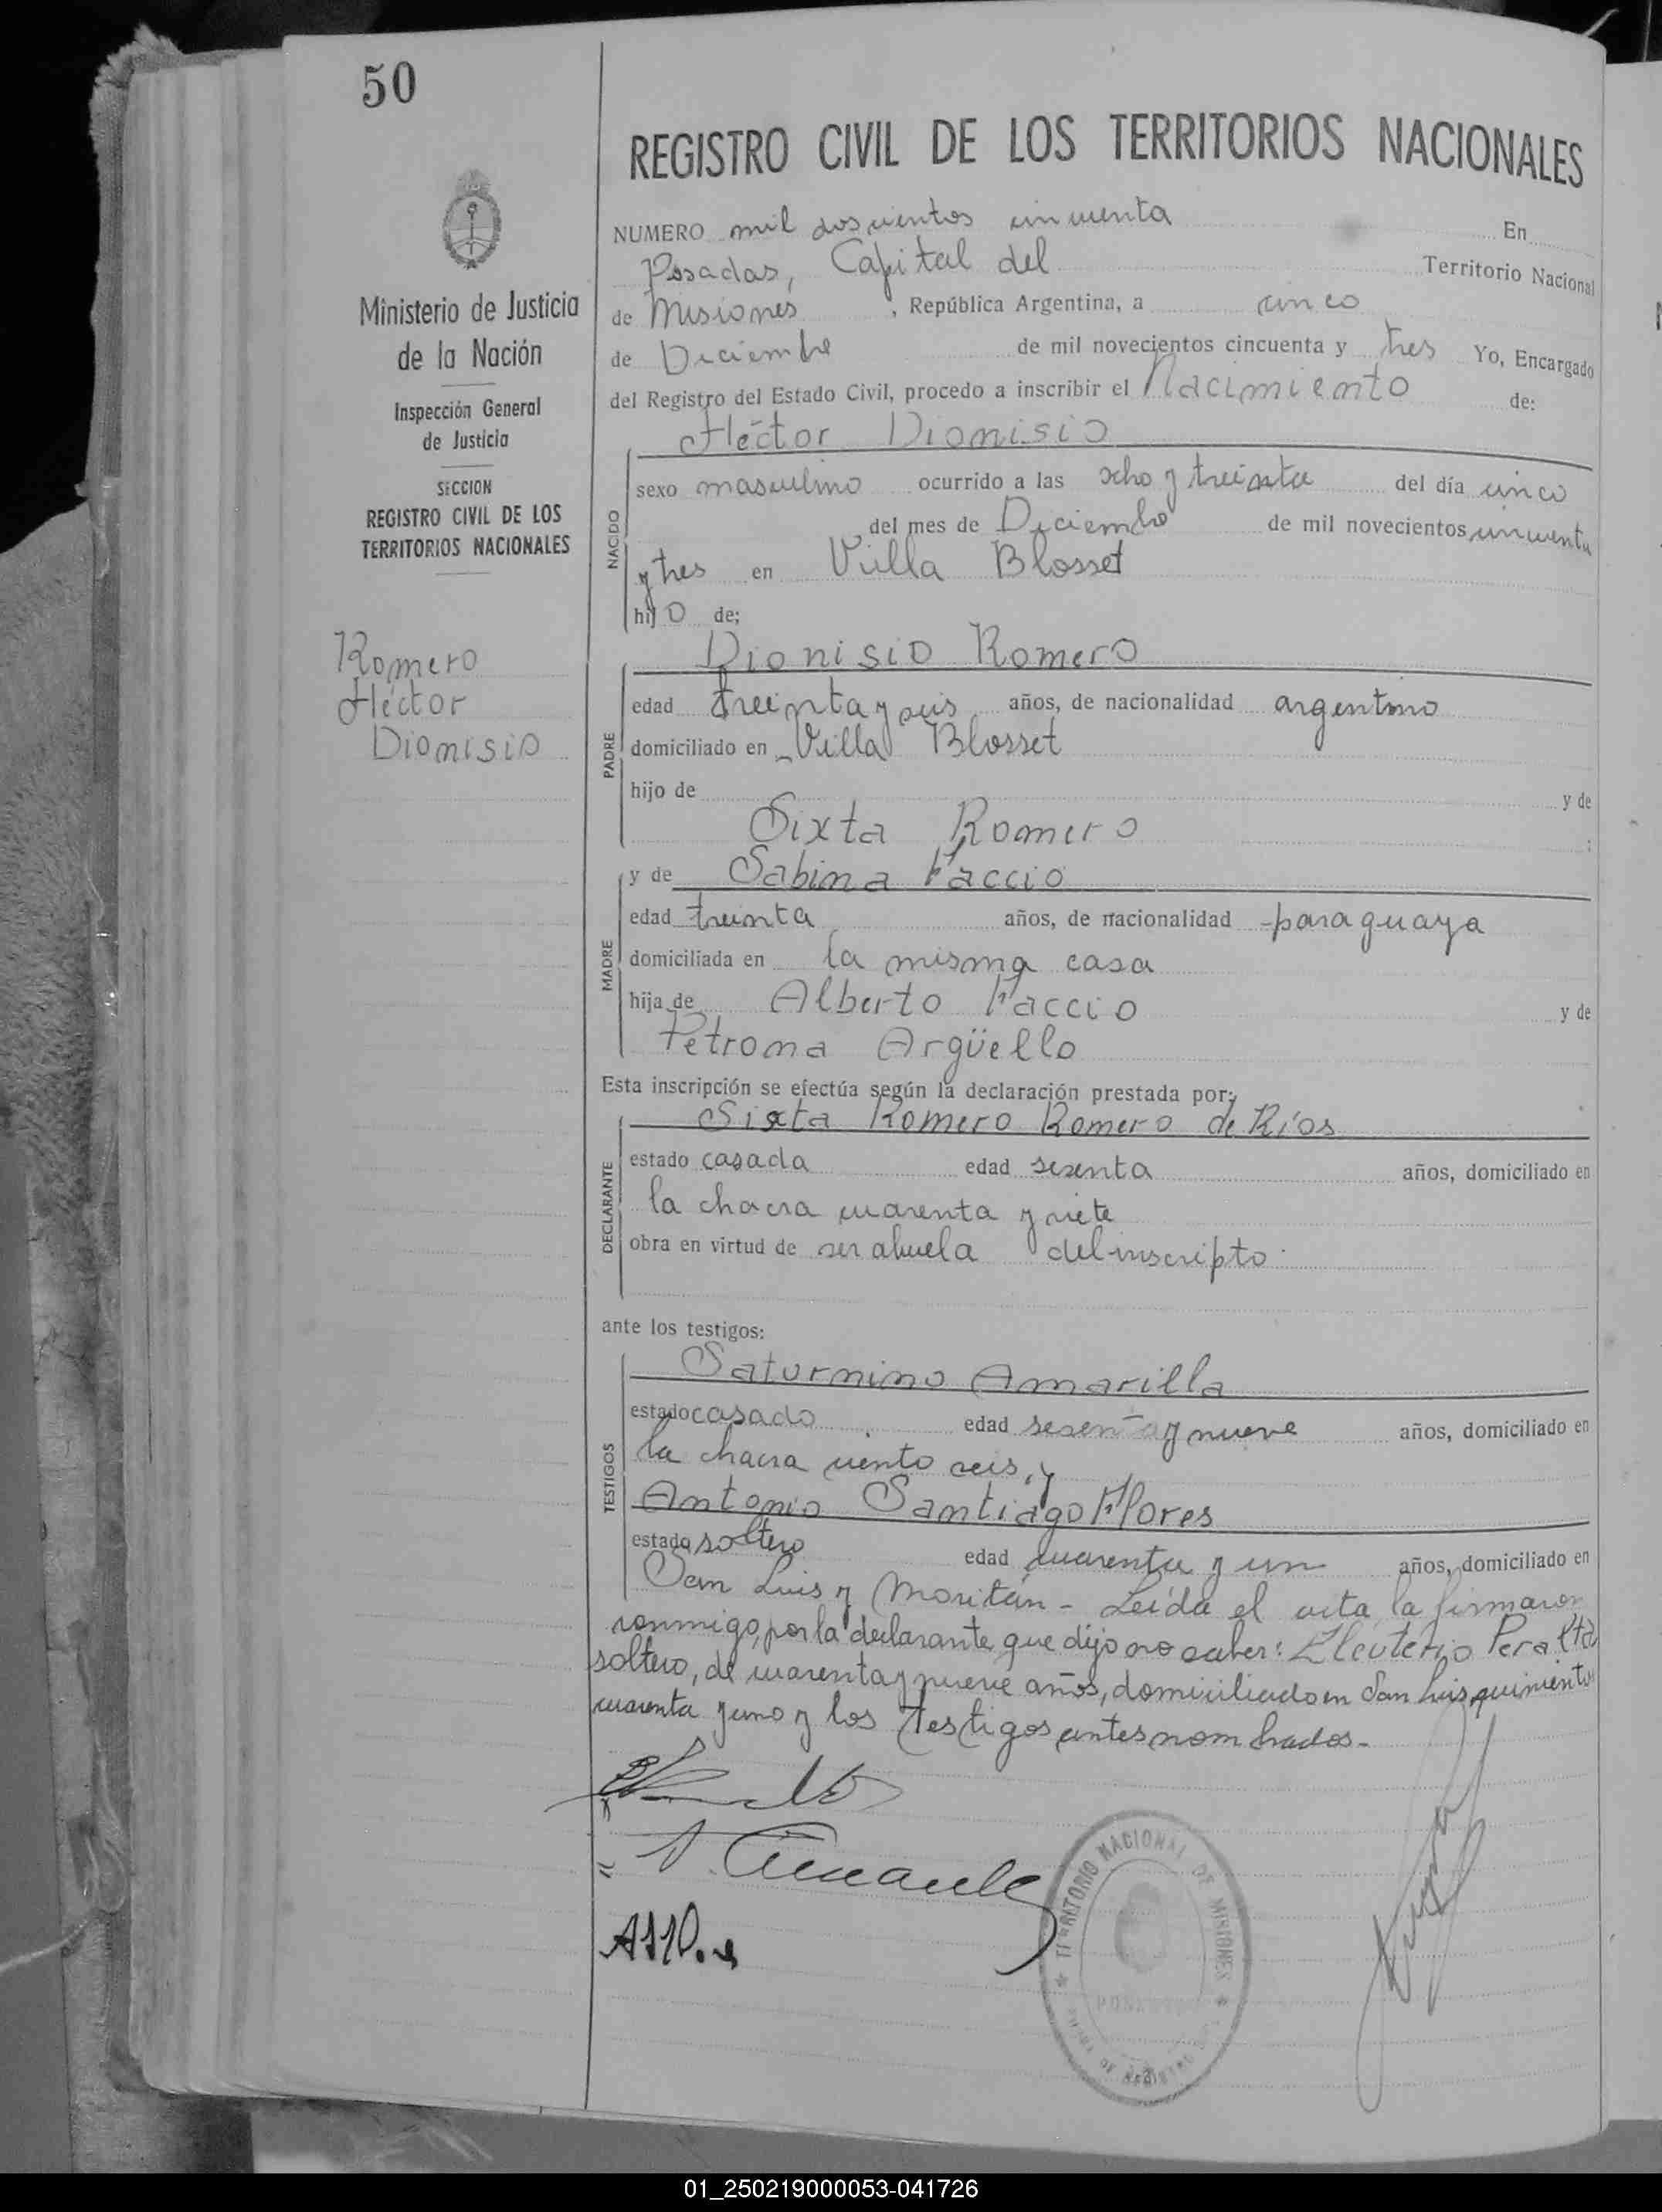 50
REGISTRO CIVIL DE LOS TERRITORIOS NACIONALES
Ministerio de Justicia
de la Nación
Inspección General
de Justicia
SECCION
REGISTRO CIVIL DE LOS
TERRITORIOS NACIONALES
Romero
Héctor
Dionisio
NUMERO mil doscientos cincuenta En
Posadas, Capital del Territorio Nacional
de Misiones, República Argentina, a cinco
de Diciembre de mil novecientos cincuenta y tres Yo, Encargado
del Registro del Estado Civil, procedo a inscribir el Nacimiento de:
Héctor Dionisio
NACIDO
sexo masculino ocurrido a las ocho y treinta del día cinco
del mes de Diciembre de mil novecientos cincuenta
y tres en Villa Blosset
hijo de;
Dionisio Romero
PADRE
edad treinta y seis años, de nacionalidad argentino
domiciliado en Villa Blosset
hijo de y de
Sixta Romero
y de Sabina Faccio
MADRE
edad treinta años, de nacionalidad paraguaya
domiciliada en la misma casa
hija de Alberto Faccio y de
Petrona Argüello
Esta inscripción se efectúa según la declaración prestada por:
Sixta Romero Romero de Ríos
DECLARANTE
estado casada edad sesenta años, domiciliado en
la chacra cuarenta y siete
obra en virtud de ser abuela del inscripto.
ante los testigos:
Saturnino Amarilla
TESTIGOS
estado casado edad sesenta y nueve años, domiciliado en
la chacra ciento seis, y
Antonio Santiago Flores
estado soltero edad cuarenta y un años, domiciliado en
San Luis y Moritán - Leída el acta la firmaron
conmigo, por la declarante que dijo no saber: Eleuterio Peralta
soltero, de cuarenta y nueve años, domiciliado en San Luis quinientos
cuarenta y uno y los testigos antes nombrados.-
TERRITORIO NACIONAL DE MISIONES
POSADAS
01_250219000053-041726